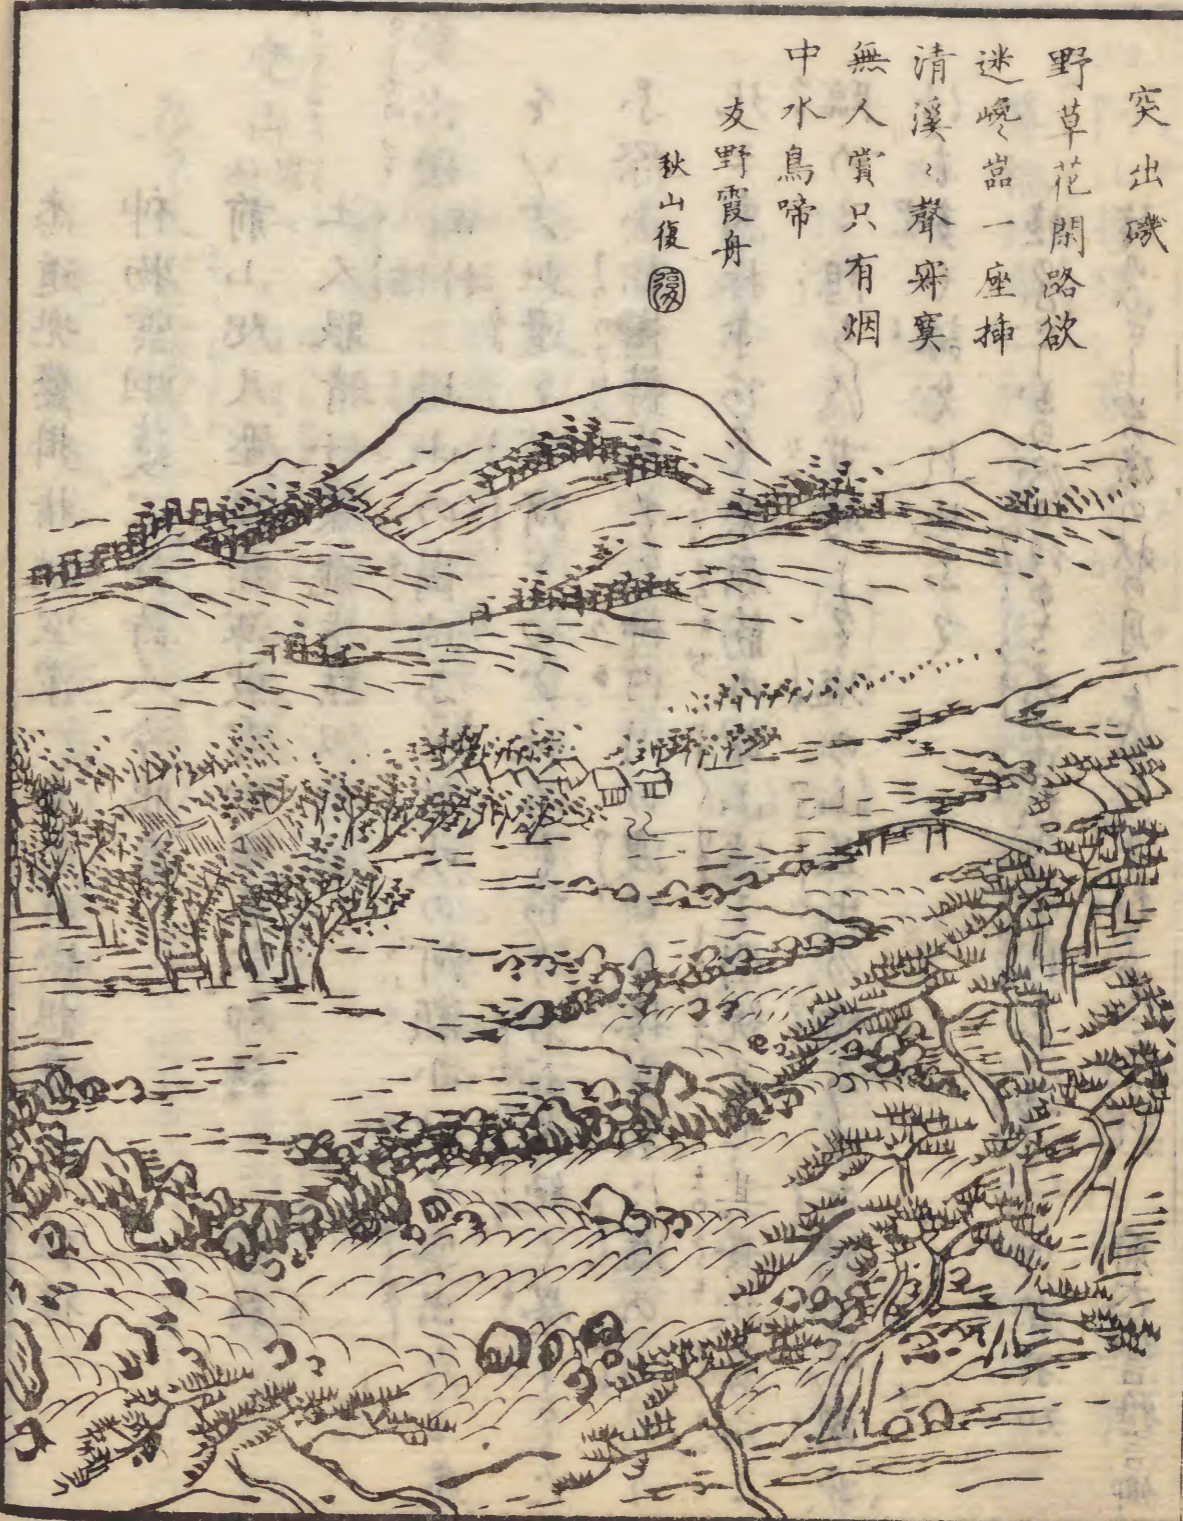 突出磯
野草花閑路欲
迷巉嵓一座插
清溪〻聲寂寞
無人賞只有烟
中水鳥啼
友野霞舟
秋山復